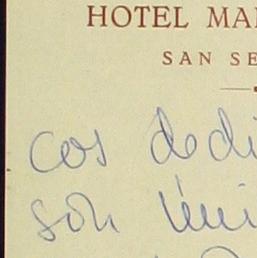 HOTEL MA
SAN SE
cos dedi
son úni